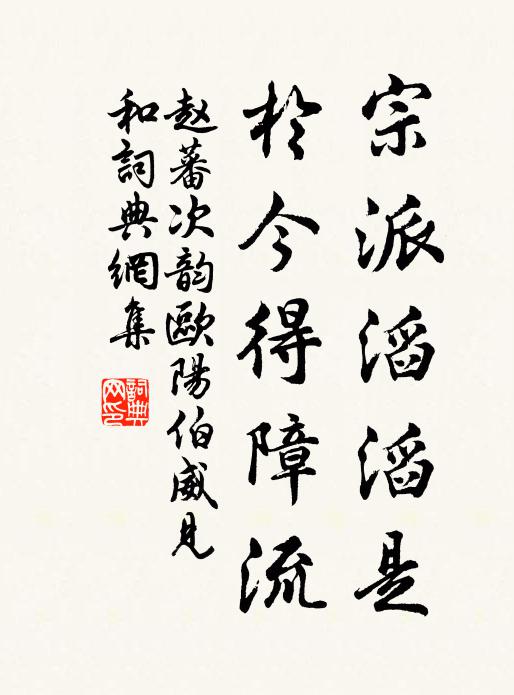 宗派滔滔是
於今得障流
赵蕃次韵歐陽伯威見
和詞典網集
詞典
网印